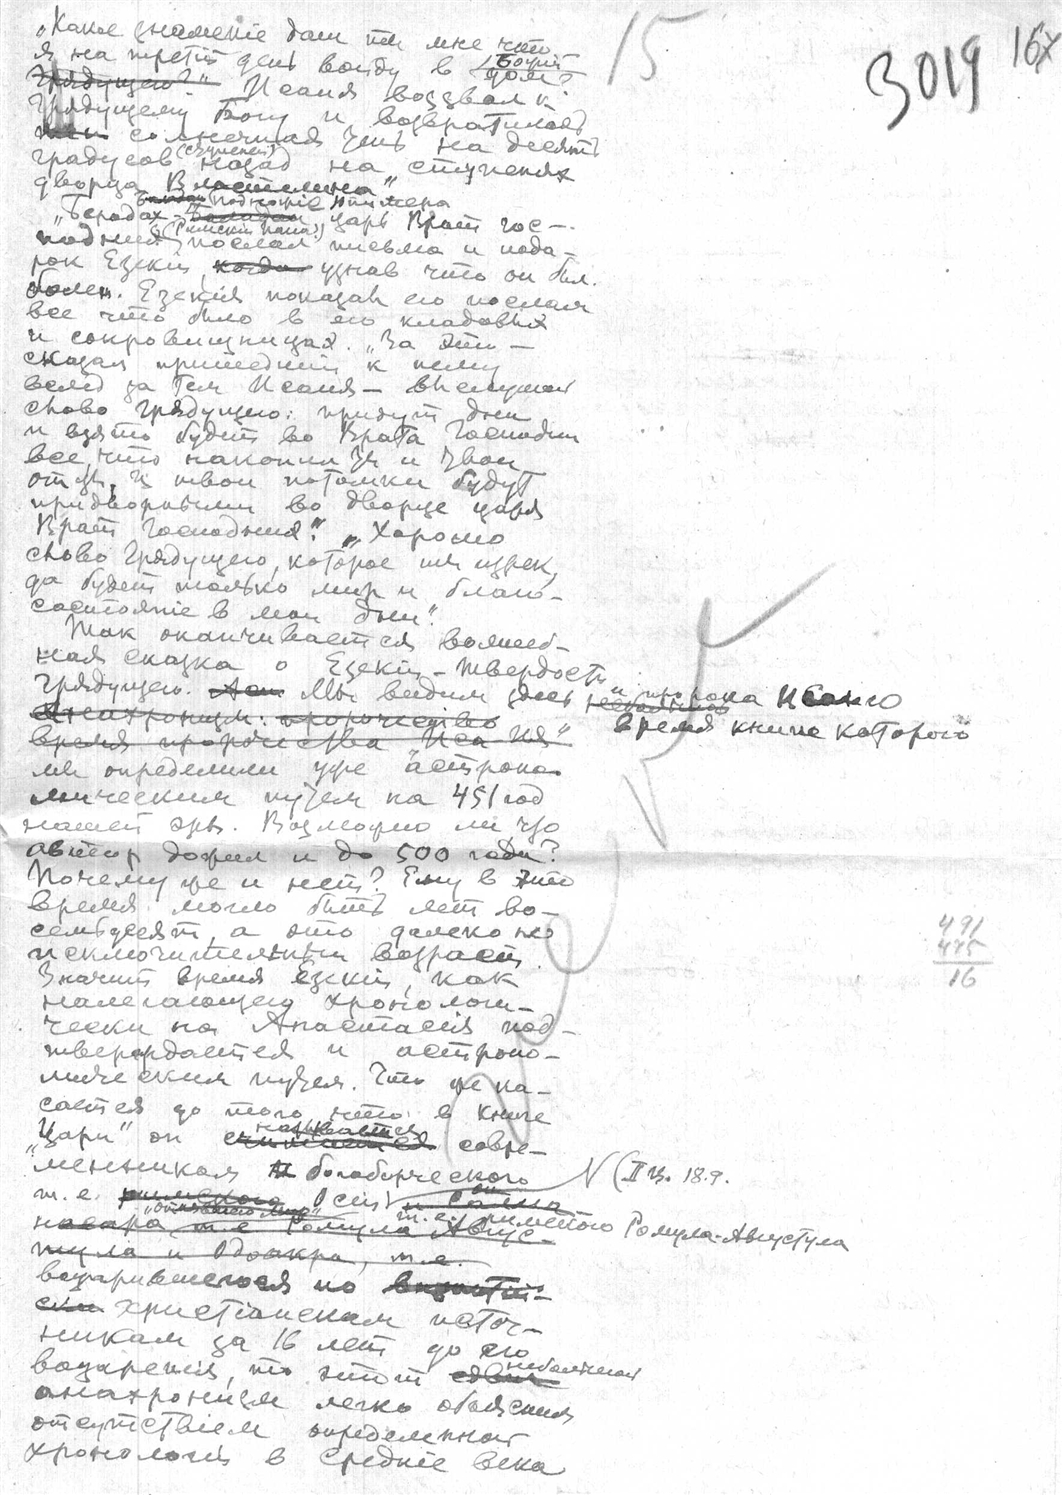 15
3019
16х
„Какое знаменіе даш ты мне что
я на третій день войду в Божій дом?
Грядущего?" Исаия воззвал к
Грядущему Богу и возвратилась
солнечная тень на десять
градусов (ступеней) назад на ступенях
дворца Властелина"
„Беродах-Баладан царь Врат гос-
подних (Римский папа?) послал письма и пода-
рок Езекіи, когда узнав что он был
болен. Езекія показал его послам
все что было в его кладовых
и сокровищницах. „За это —
сказал пришедшій к нему
вслед за тем Исаия — выслушай
слово Грядущего: придут дни
и взято будет во Врата Господни
все, что накопил ты и твои
отцы. И твои потомки будут
придворными во дворце царя
Врат Господних". „Хорошо
слово Грядущего, которое ты изрек,
да будет только мир и благо-
состояніе в мои дни".
Так оканчивается волшеб-
ная сказка о Езекіи-твердость
Грядущего. Мы видим здесь и пророка Исаию
анахронизм: пророчество
время пророчества „Исаия"
время книги которого
мы определили уже астроно-
мическим путем на 451 год
нашей эры. Возможно ли что
автор дожил и до 500 года?
Почему же и нет? Ему в это
время могло быть лет во-
семьдесят, а это далеко не
исключительный возраст.
Значит время Езекіи, как
налегающего хронологи-
чески на Анастасія под-
тверждается и астроно-
мическим путем. Что же ка-
сается до того, что в книге
„Цари" он называется считается совре-
менником богоборческого
(II Ц. 18.9.
т.е. римского Осіи
т.е. римского Ромула-Августула
насара, т.е. Ромула Авгус-
тула и Одоакра, т.е.
воцарившегося по византій-
ским христіанским источ-
никам за 16 лет до его
воцаренія, то этот небольшой
анахронизм легко объясним
отсутствіем определенной
хронологіи в средніе века
491
475
16